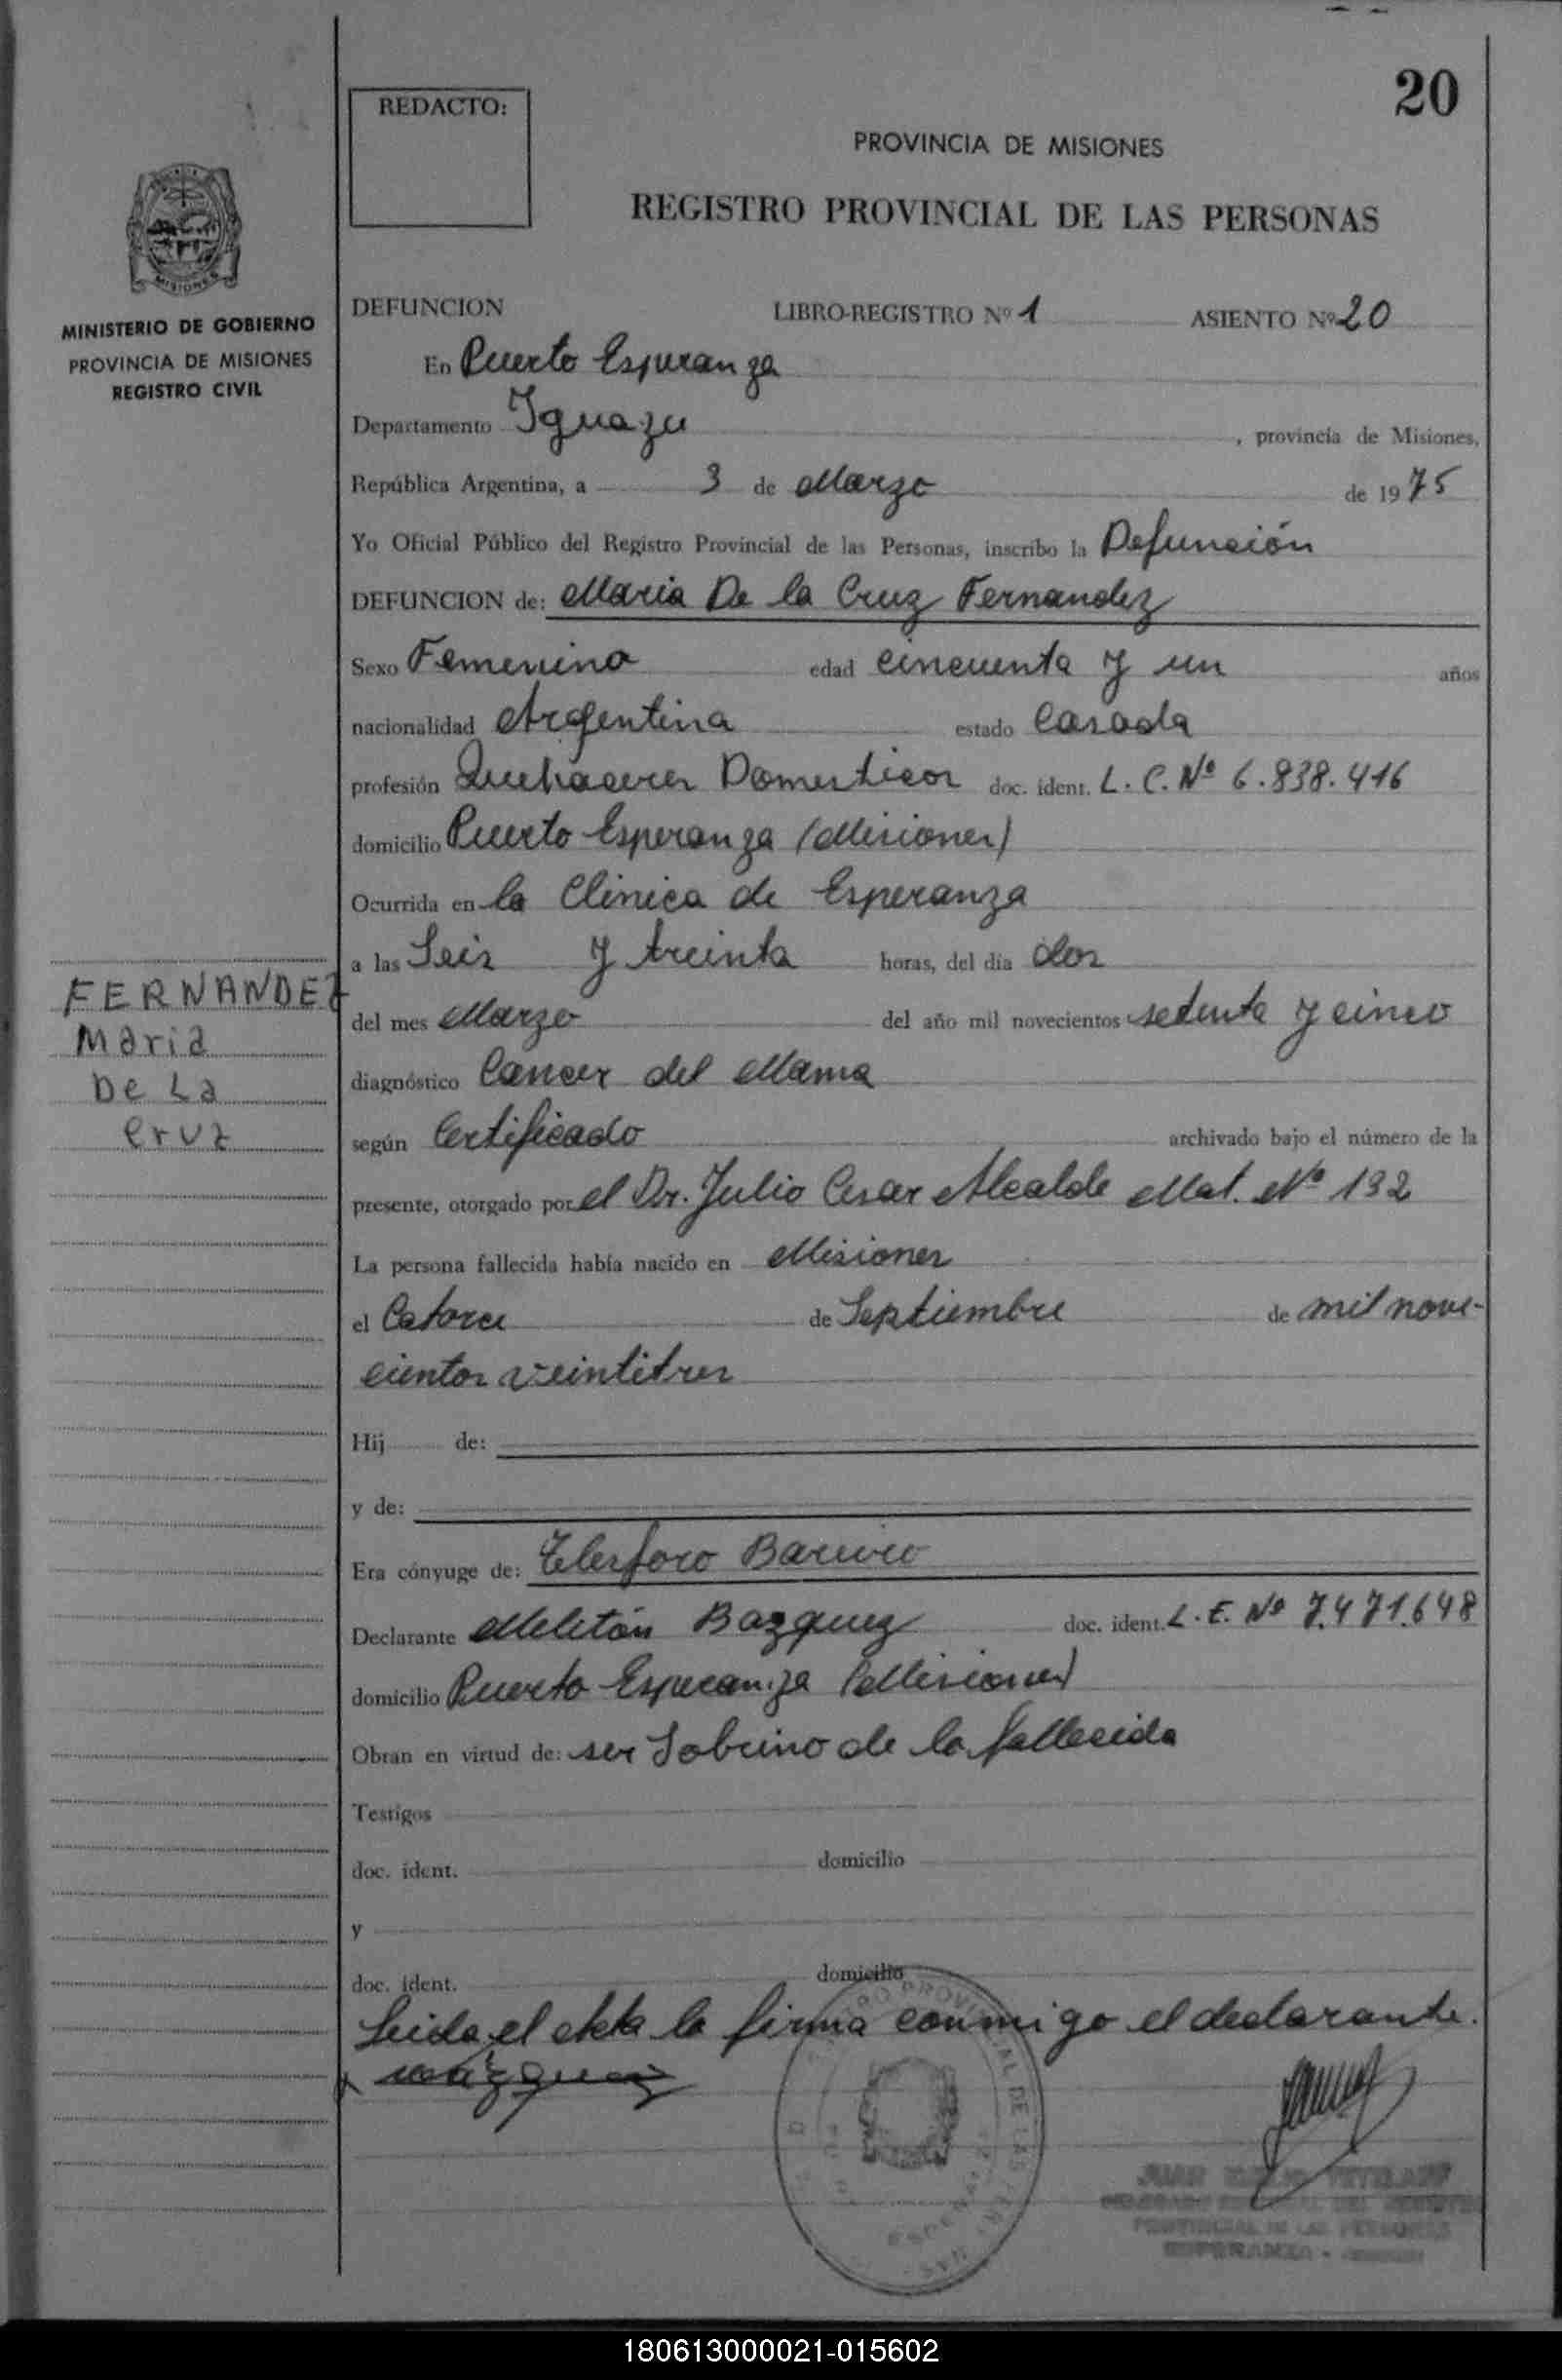 20
REDACTO:
PROVINCIA DE MISIONES
REGISTRO PROVINCIAL DE LAS PERSONAS
MISIONES
MINISTERIO DE GOBIERNO
PROVINCIA DE MISIONES
REGISTRO CIVIL
DEFUNCION LIBRO-REGISTRO Nº 1 ASIENTO Nº 20
En Puerto Esperanza
Departamento Iguazu, provincia de Misiones,
República Argentina, a 3 de Marzo de 1975
Yo Oficial Público del Registro Provincial de las Personas, inscribo la Defunción
DEFUNCION de: Maria De la Cruz Fernandez
Sexo Femenino edad cincuenta y un años
nacionalidad Argentina estado Casada
profesión Quehaceres Domesticos doc. ident. L. C. Nº 6.838.416
domicilio Puerto Esperanza (Misiones)
Ocurrida en la Clinica de Esperanza
a las Seis y treinta horas, del día dos
del mes Marzo del año mil novecientos setenta y cinco
diagnóstico Cancer del Mama
según Certificado archivado bajo el número de la
presente, otorgado por el Dr. Julio Cesar Alcalde Mat. Nº 132
La persona fallecida había nacido en Misiones
el Catorce de Septiembre de mil nove-
cientos veintitres
Hij de:
y de:
Era cónyuge de: Telesforo Bareiro
Declarante Melitón Bazquez doc. ident. L. E. Nº 7.471.648
domicilio Puerto Esperanza (Misiones)
Obran en virtud de: ser Sobrino de la fallecida
Testigos
doc. ident. domicilio
y
doc. ident. domicilio
Leida el Acta la firma conmigo el declarante.
FERNANDEZ
Maria
De La
Cruz
PROVINCIAL DE LAS PERSONAS
ESPERANZA
180613000021-015602